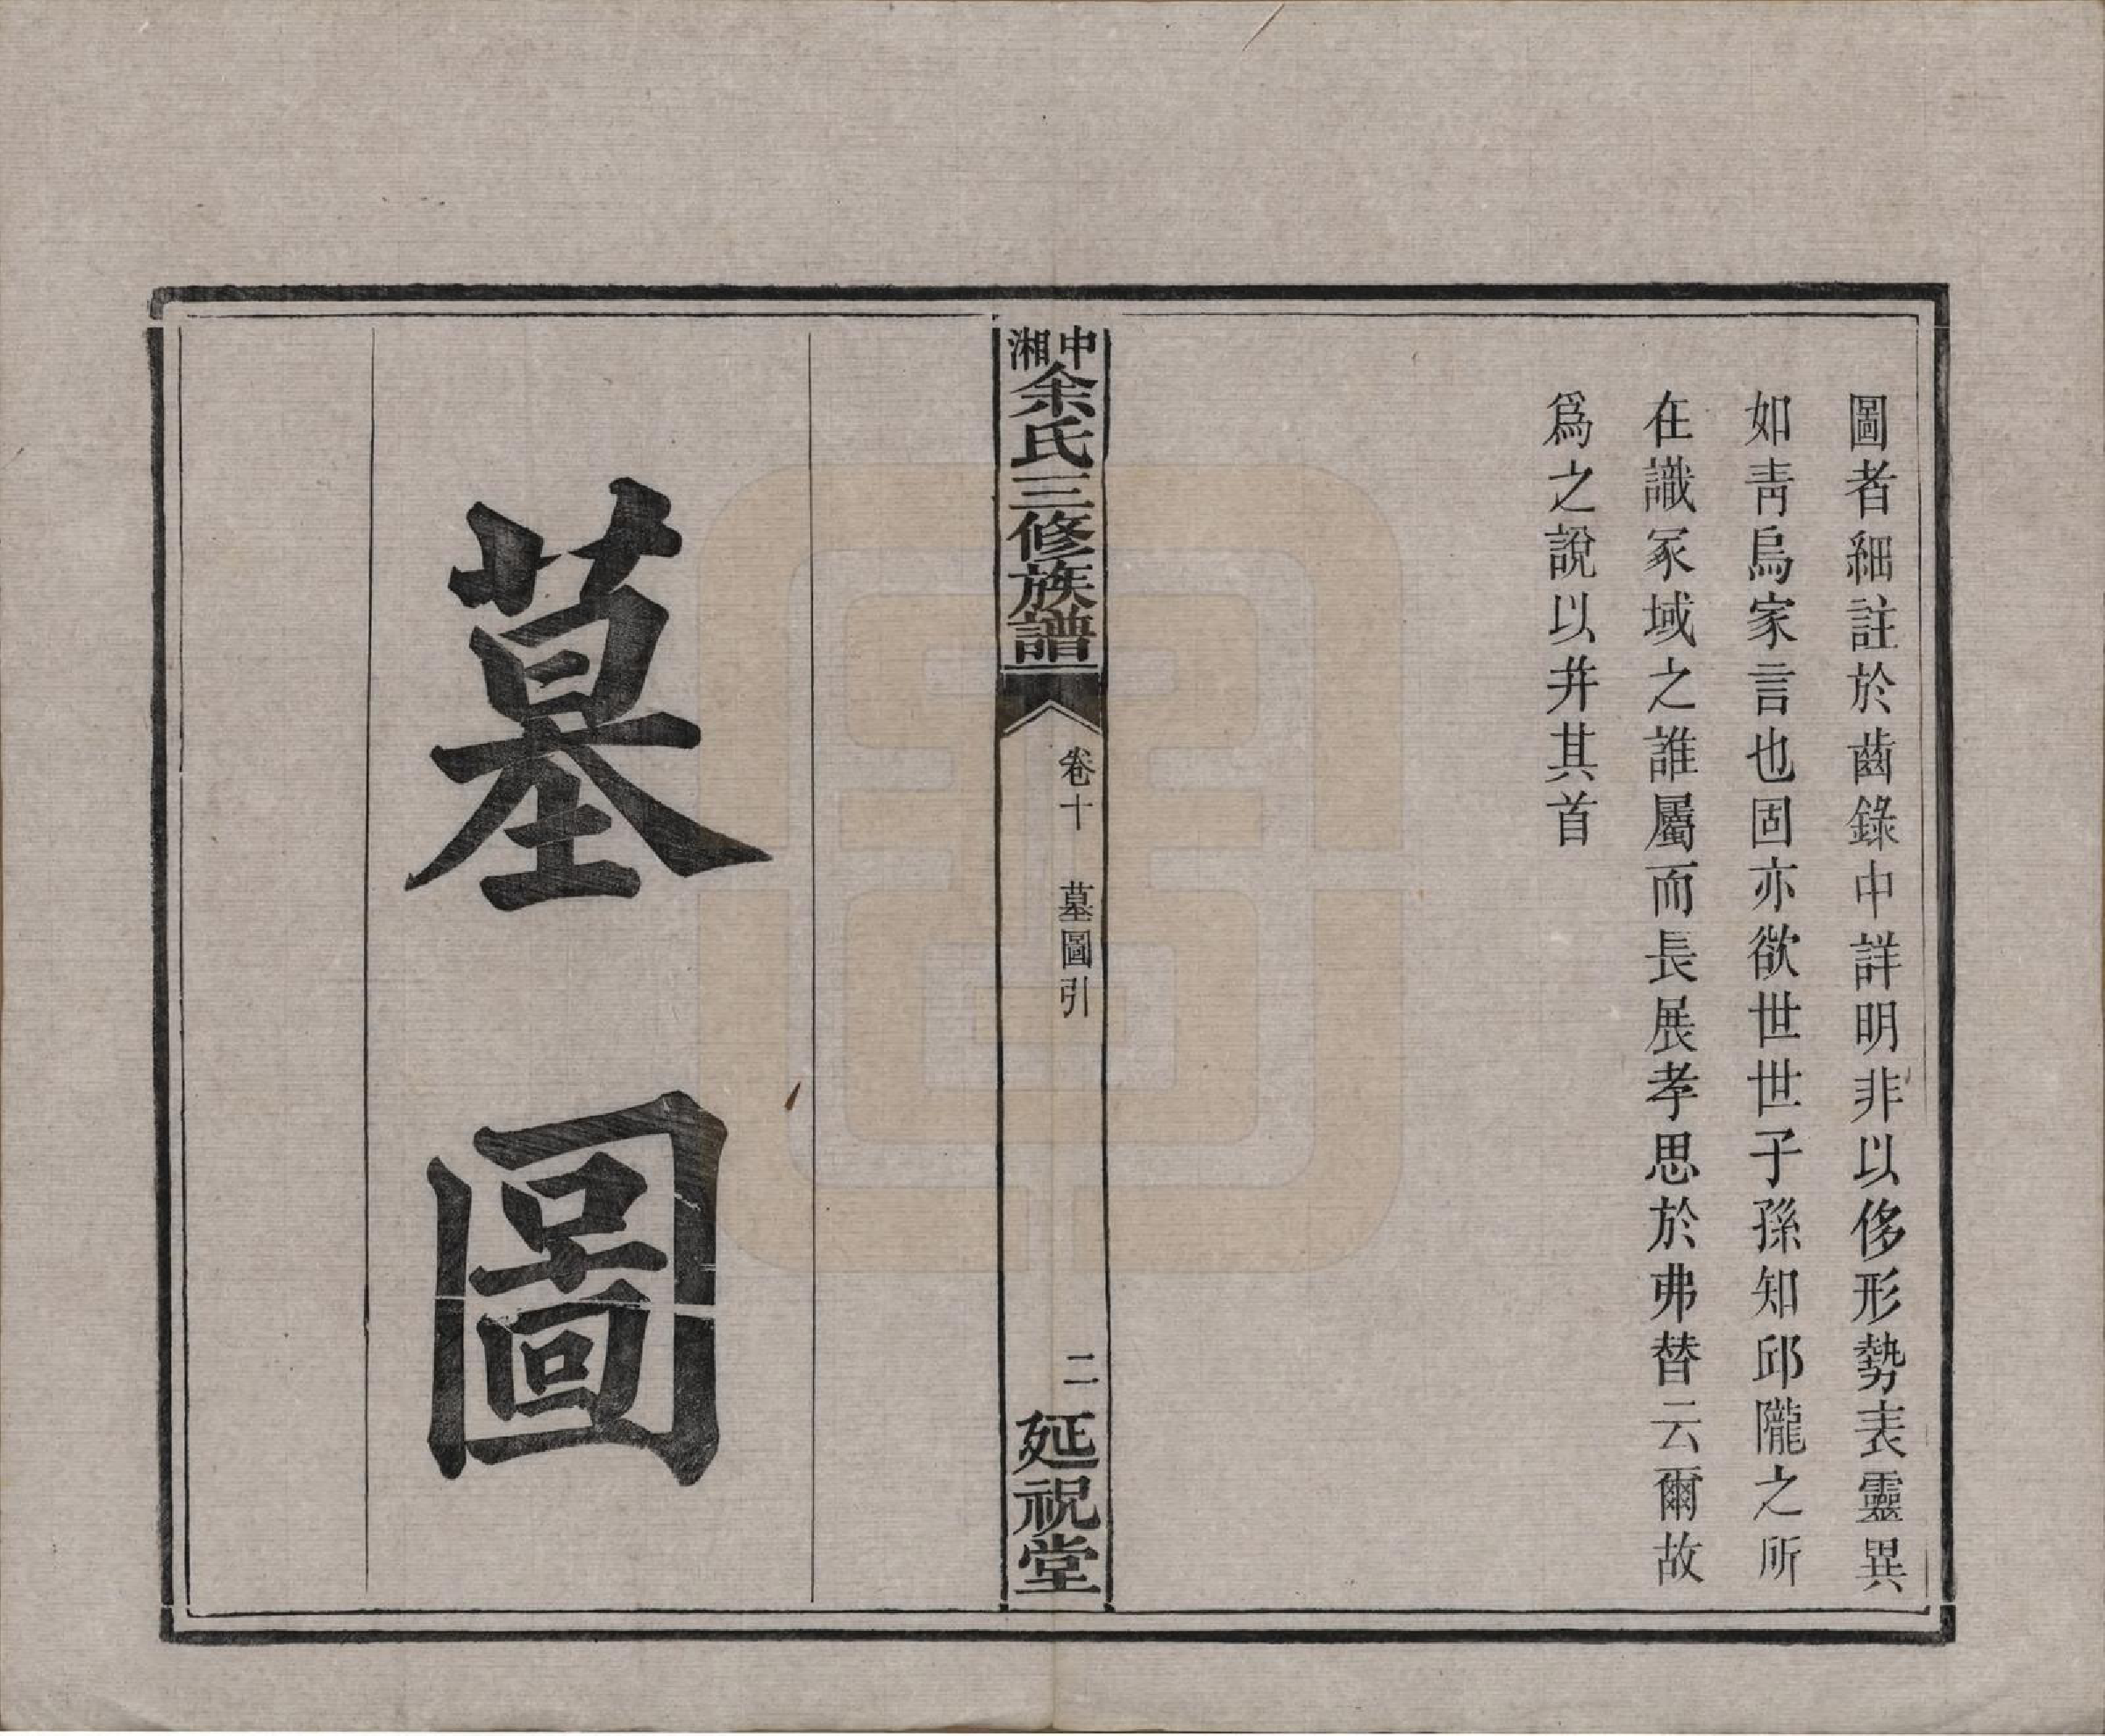 圖者細註於齒錄中詳明非以侈形勢表靈異
如靑烏家言也固亦欲世世子孫知邱隴之所
在識冢域之誰屬而長展孝思於弗替云爾故
爲之說以弁其首
中湘余氏三修族譜
卷十 墓圖引
二
延祝堂
墓圖